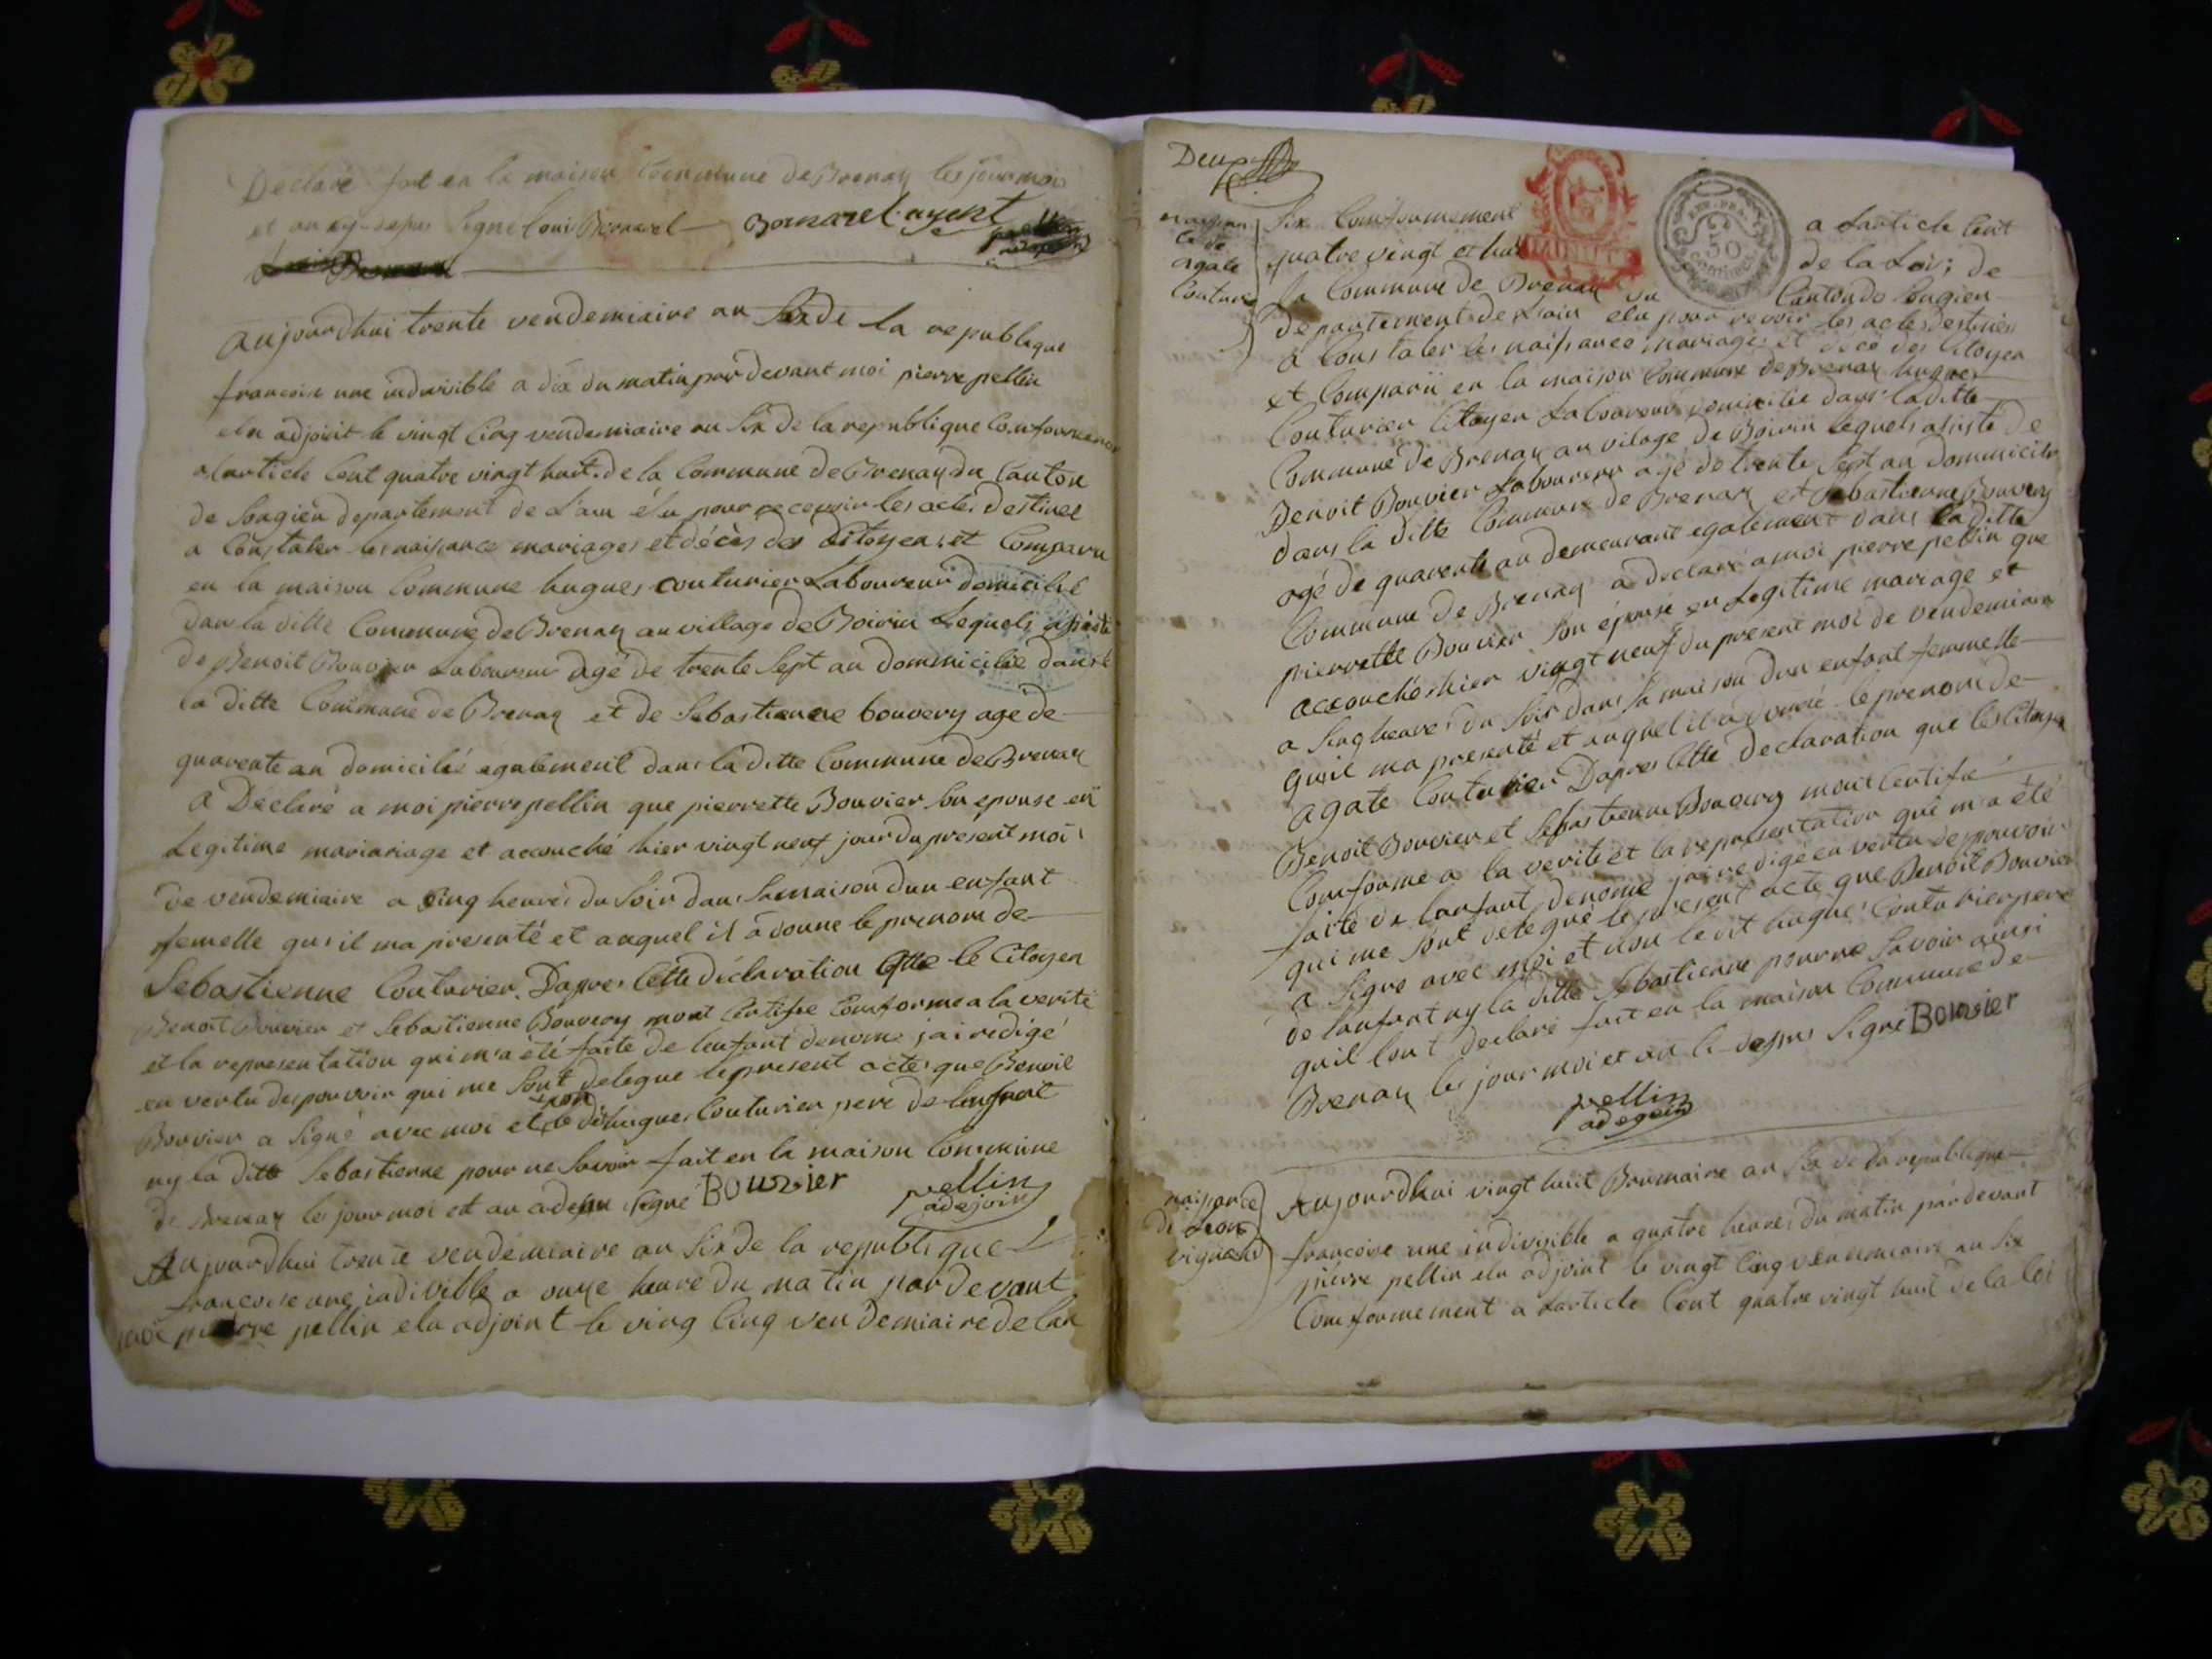 Declaré fait en la maison Commune de Brenaz les jour mois
et an cy-depus Signe Loui Bernard Bonarel agent
Aujourdhui trente vendemiaire an Six de la republique
francoise une indivisible a dix du matin par devant moi pierre pellin
elu adjoint le vingt Cinq vendemiaire an Six de la republique Conformement
a larticle Cent quatre vingt huit de la Commune de Brenaz du Canton
de Songieu departement de Lain élu pour recevoir les actes destinee
a Constater les naissance mariages et décès des Citoyens et Comparu
en la maison Commune hugues couturier Laboureur domicilié
dans la ditte Commune de Brenaz au village de Boirin Lequels assisté
de Benoit Bouvier Laboureur agé de trente Sept an dommicilié dans
la ditte Commune de Brenaz et de Sebastienne bouvery agé de
quarente an domicilié egalement dans la ditte Commune de Brenaz
a Déclaré a moi pierre pellin que pierrette Bouvier Son epouse en
Legitime mariariage et accouché hier vingt neuf jour du present moi
de vendemiaire a Cinq heures du Soir dans Sa maison dun enfant
femelle quil ma presenté et auquel il a donne le prenom de
Sebastienne Couturier. Dapres Cette déclaration que le Citoyen
Benoit Bouvier et Sebastienne Bouvery mont Certifie Comforme a la verité
et la representation qui m'a été faite de lenfant denome jai redigé
en vertu des pouvoir qui me Sont delegue le present acte que Benoit
Bouvier a Signé avec moi et non le dit hugues Couturier pere de lenfant
ny la ditte Sebastienne pour ne Savoir fait en la maison Commune
de Brenaz les jour moi et an adepu Signé Bouvier pellin
adejoin
Aujourdhui trente vendemiaire an Six de la republique
francoise une indivible a onze heure du matin par devant
moi pierre pellin elu adjoint le ving Cinq vendemiaire de lan
Deux
naissan
ce de
agate
Couturie
Six Comformement a Larticle Cent
quatre vingt et huit de la Loi; de
la Commune de Brenaz du Canton de Songieu
departement de Lain elu pour recevoir les actes destinees
a Constater les naissance mariages et décé des Citoyen
et Comparu en la maison Commune de Brenaz hugues
Couturier Citoyen Laboureur domicilie dans la ditte
Commune de Brenaz au vilage de Boirin lequels assisté de
Benoit Bouvier Laboureur agé de trente Sept an dommicilie
dans la ditte Commune de Brenaz et Sebastienne Bouvery
agé de quarente an demeurant egalement dans la ditte
Commune de Brenaz a declaré a moi pierre pellin que
pierrette Bouvier Son épouse en Legitime mariage et
accouchés hier vingt neuf du present moi de vendemiaire
a Sinq heures du Soir dans Sa maison dun enfant femmelle
quil ma presenté et auquel il a donné le prenom de
agate Couturier Dapres Cette declaration que les Citoyen
Benoit Bouvier et Sebastienne Bouvery mont Certifié
Comforme a la verité et la representation qui m'a été
faite de lanfant denomé jai redigé en vertu des pouvoir
qui me Sont delegué le present acte que Benoit Bouvier
a Signe avec moi et non le dit hugues Couturier pere
de lanfant ny la ditte Sebastienne pour ne Savoir ainsi
quil lont declaré fait en la maison Commune de
Brenaz les jour moi et an le depus Signé Bouvier
pellin
adegoin
naissance
de Leon
vignand
Aujourdhui vingt huit Brumaire an Six de la republique
francoise une indivisible a quatre heures du matin par devant
pierre pellin elu adjoint le vingt Cinq vendemiaire an Six
Comformement a Larticle Cent quatre vingt huit de la loi
REP. FRA.
50
CENTIMES
MINUTE